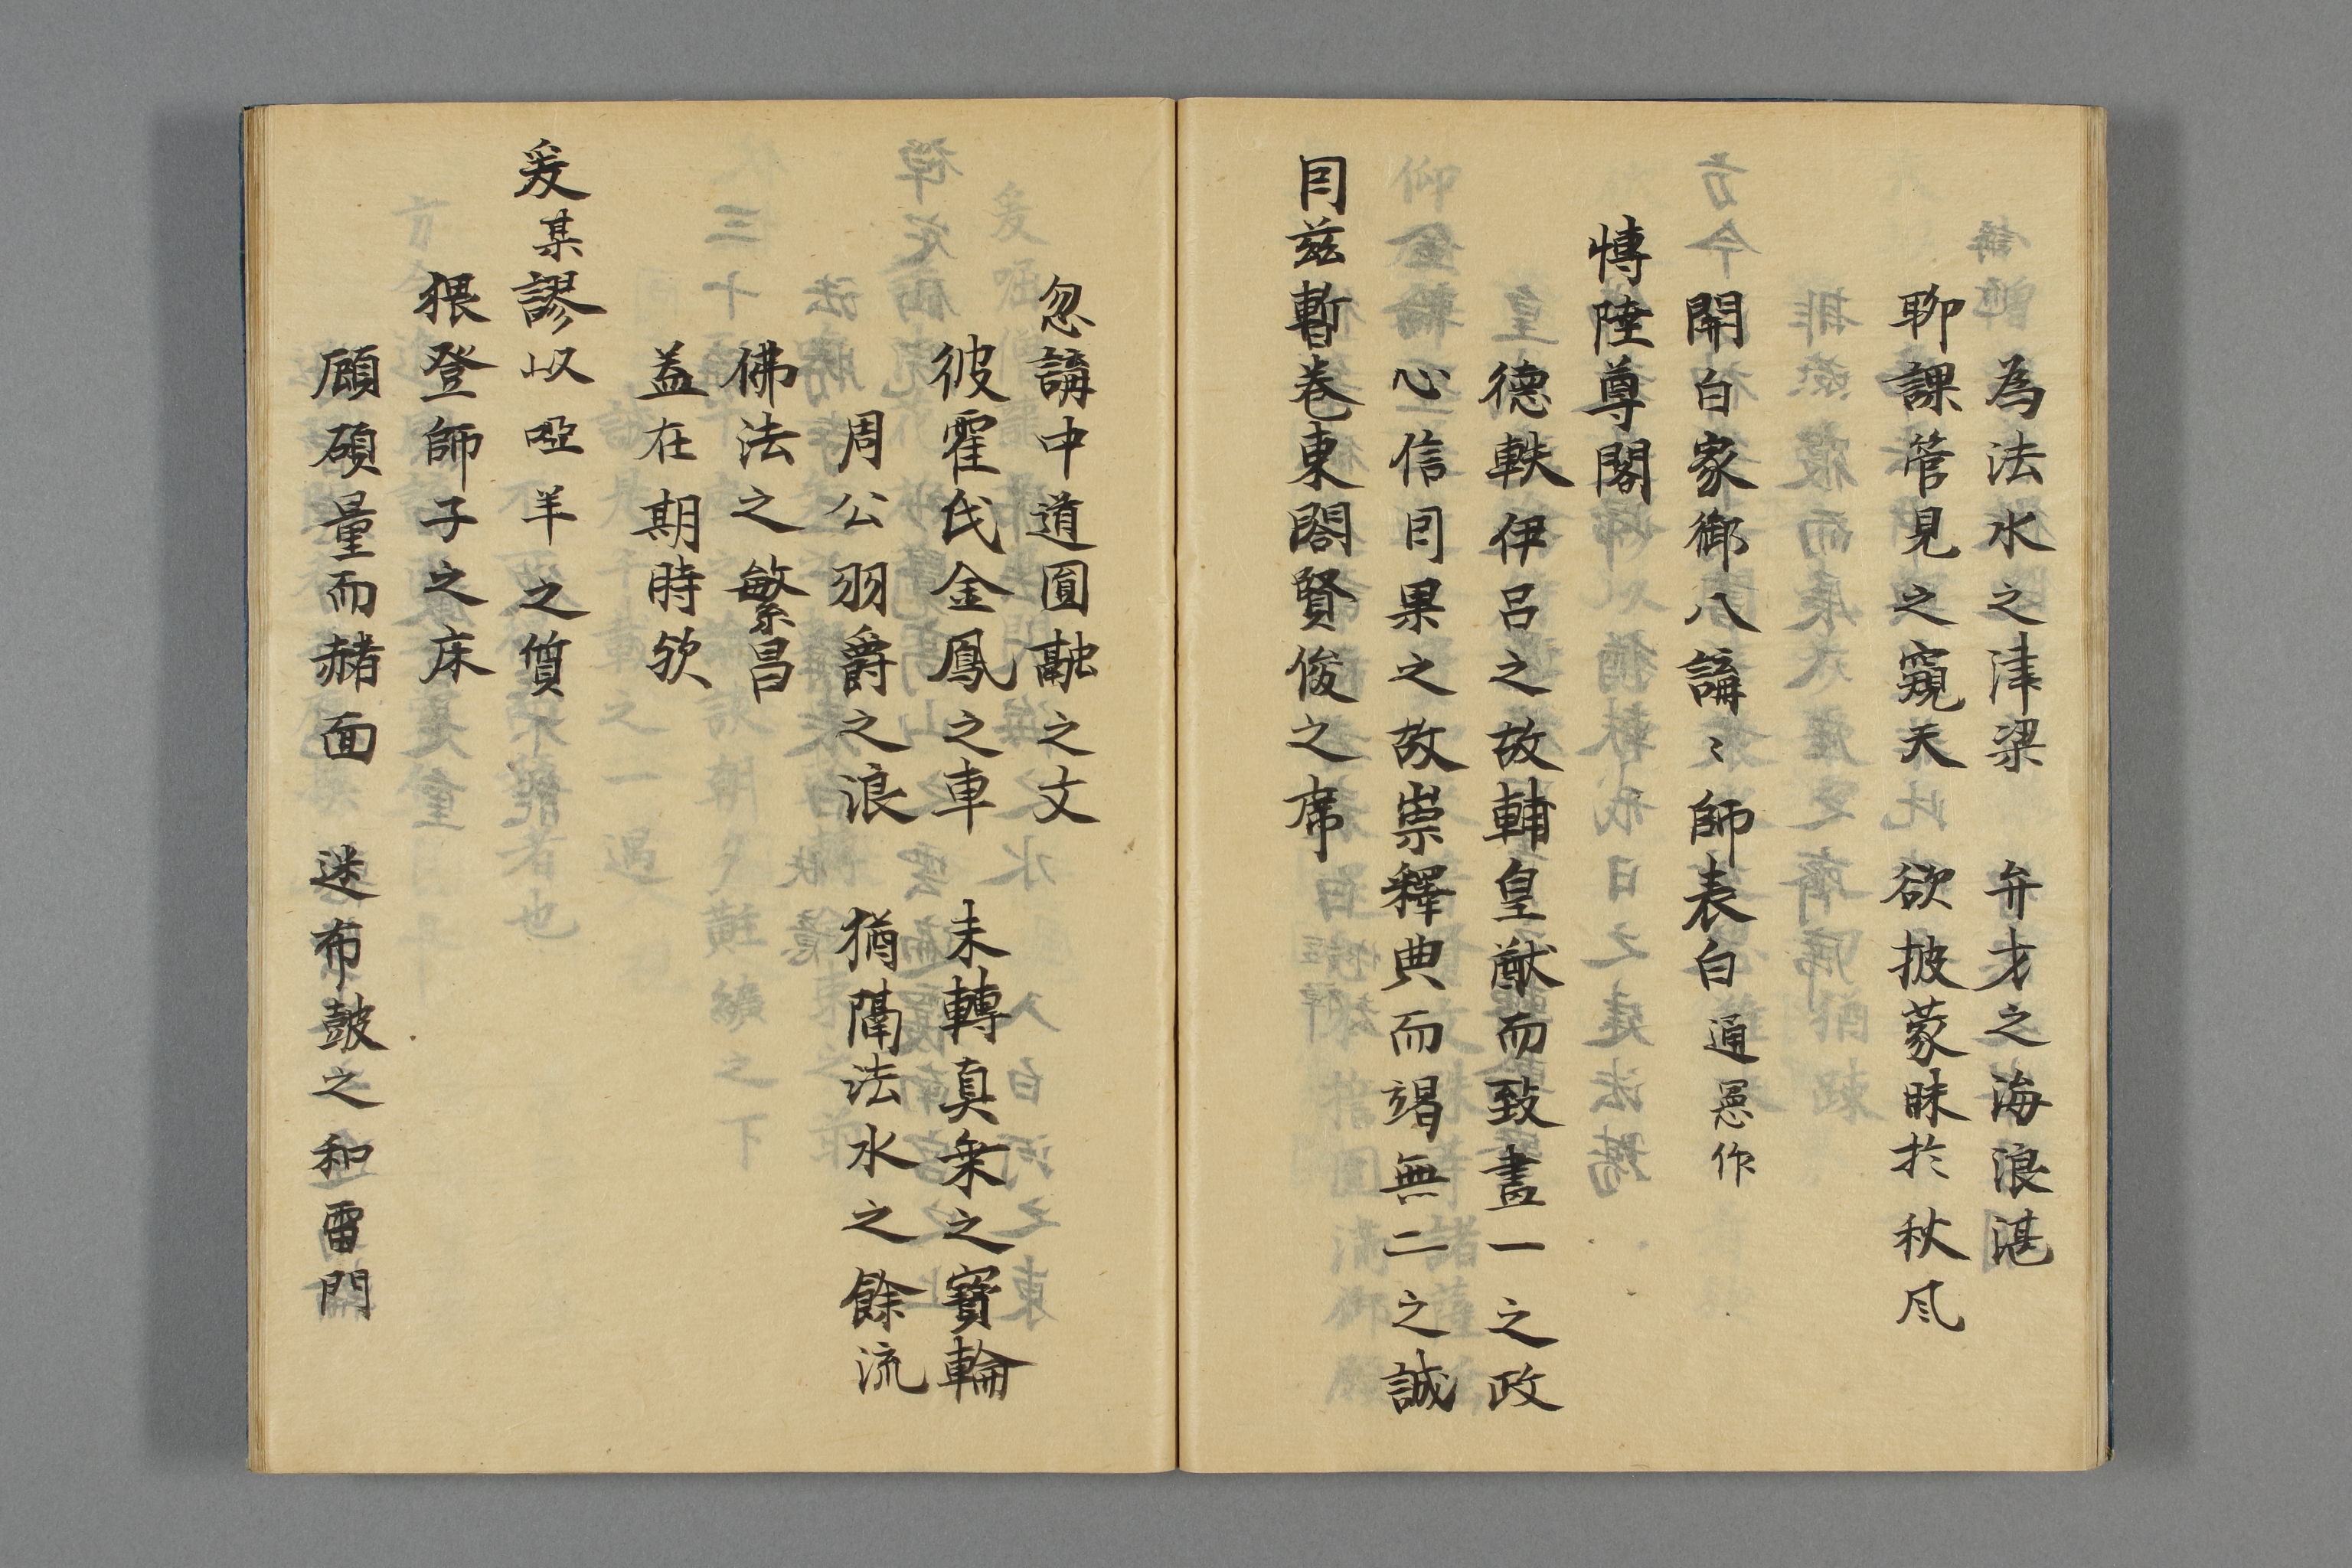 為法水之津梁　弁才之海浪湛
聊課管見之窺天　欲披蒙昧於秋风
開白家御八講〻師表白 通憲作
愽陸尊閣
德軼伊呂之故輔皇猷而致畫一之政
心信囙果之故崇釋典而竭無二之誠
囙茲暫巻東閣賢俊之席
忽講中道圓融之文
彼霍氏金鳳之車　未轉真乗之寳輪
周公羽爵之浪　猶隔法水之餘流
佛法之繁昌
益在期時欤
爰某謬以啞羊之質
猥登師子之床
顧碩量而赭面　送布皷之和雷門